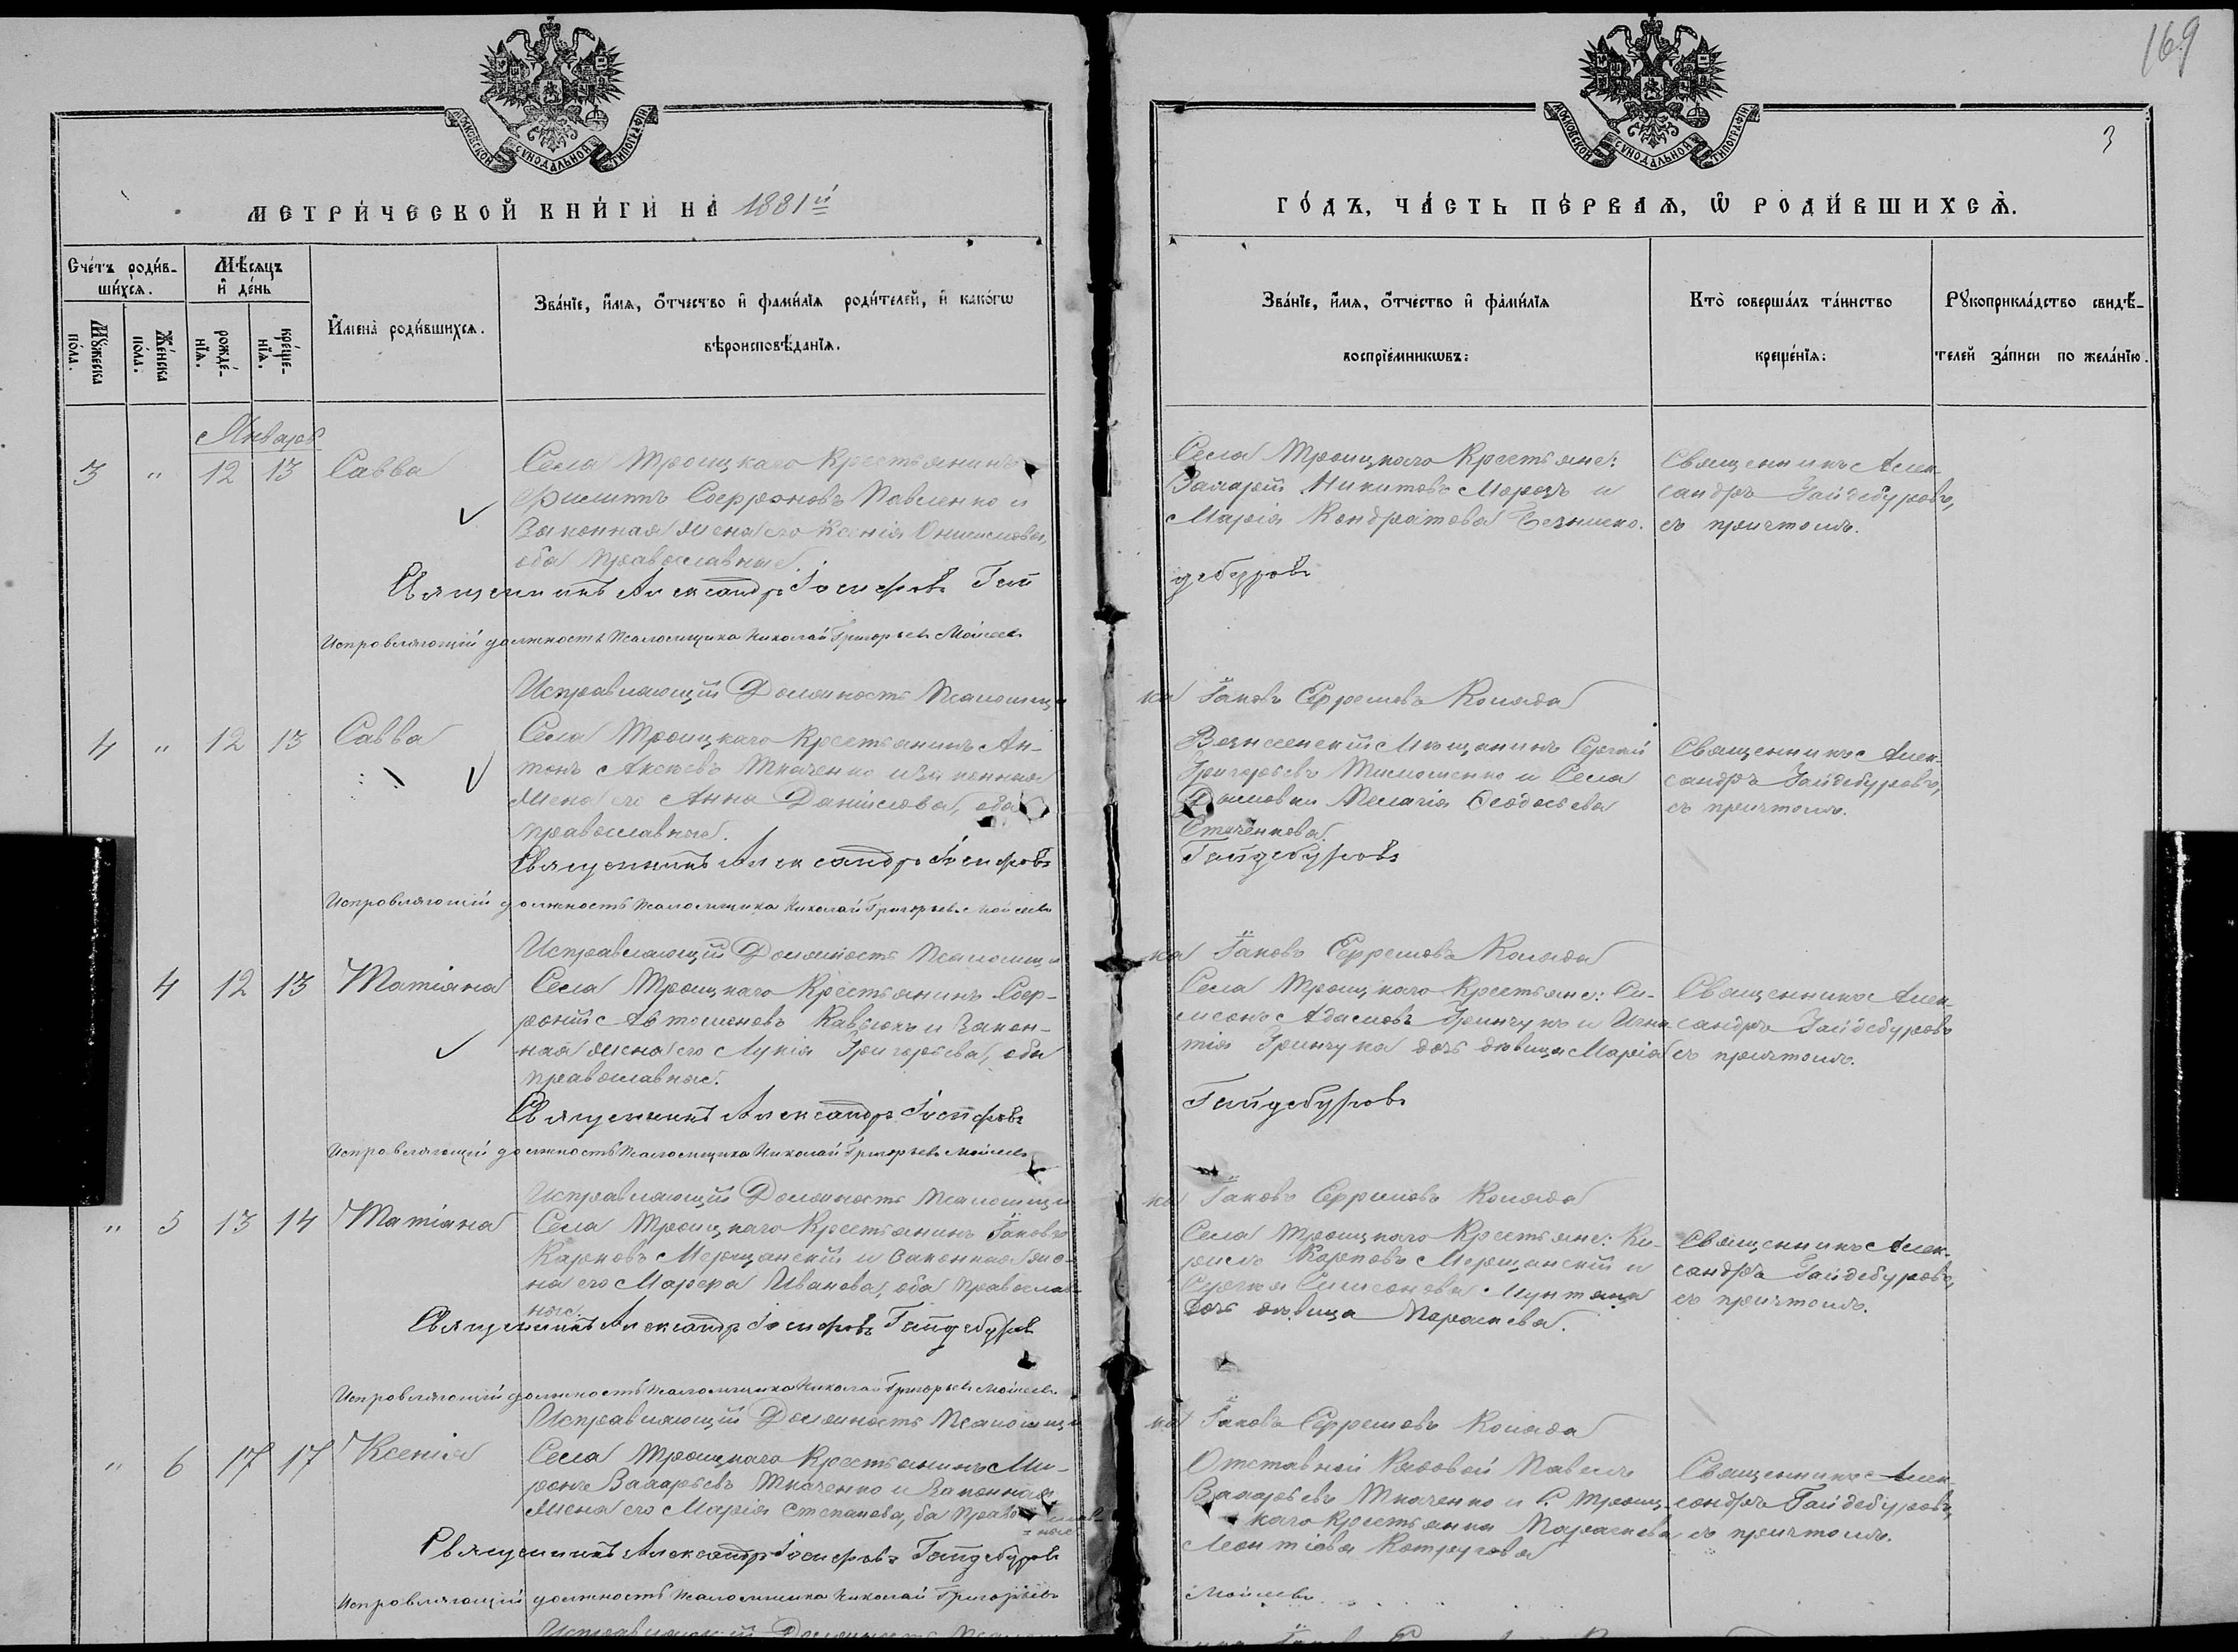 169
3
МОСКОВСКОЙ СУНОДАЛЬНОЙ ТИПОГРАФІИ
МОСКОВСКОЙ СУНОДАЛЬНОЙ ТИПОГРАФІИ
МЕТРИ́ЧЕСКОЙ КНИ́ГИ НА 1881й
ГО́ДЪ, ЧА́СТЬ ПЕ́РВАѦ, Ѡ РОДИ́ВШИХСѦ.
Сче́тъ роди́в-
ши́хсѧ.
Мѣ́сяцъ
и де́нь
Мꙋ́жеска
по́ла.
Же́нска
по́ла.
рожде́-
нїѧ.
креще́-
нїѧ.
Имена̀ роди́вшихсѧ.
Зва́нїе, и́мѧ, о́тчество и фами́лїѧ роди́телей, и како́гѡ
вѣроисповѣ́данїѧ.
Зва́нїе, и́мѧ, о́тчество и фами́лїѧ
воспрїе́мникѡвъ:
Кто̀ соверша́лъ та́инство
креще́нїѧ:
Рꙋкоприкла́дство свидѣ́-
телей за́писи по жела́нїю.
Январь
3 " 12 13 Савва
Села Троицкаго Крестьянинъ
Филиппъ Софроновъ Павленко и
Законная жена его Ксенія Онисимова,
оба православные.
Села Троицкаго Крестьяне:
Захарій Никитовъ Морозъ и
Марія Кондратова
Священникъ Алек-
сандръ Гайдебуровъ,
съ причтомъ.
Священникъ Александръ Іосифовъ Гай
дебуровъ
Исправляющій должность Псаломщика Николай Григорьевъ Моисеевъ
Исправляющій Должность Псаломщи
ка Іаковъ Ефремовъ Коляда
4 " 12 13 Савва
Села Троицкаго Крестьянинъ Ан-
тонъ Ткаченко и Законная
жена его Анна Даніилова, оба
православные.
Вознесенскій Мѣщанинъ Сергій
Григорьевъ Тимошенко и Села
Пелагія Ѳеодосьева
Священникъ Алек-
сандръ Гайдебуровъ,
съ причтомъ.
Священникъ Александръ Іосифовъ
Гайдебуровъ
Исправляющій должность Псаломщика Николай Григорьевъ Моисеевъ
Исправляющій Должность Псаломщи
ка Іаковъ Ефремовъ Коляда
4 12 13 Татіана
Села Троицкаго Крестьянинъ Соф-
роній Автомоновъ и Закон-
ная жена его Лукія Григорьева, оба
православные.
Села Троицкаго Крестьяне: Си-
меонъ Адамовъ Гринчукъ и Игна-
тія Гринчука дочь дѣвица Марія
Священникъ Алек-
сандръ Гайдебуровъ
съ причтомъ.
Священникъ Александръ Іосифовъ
Гайдебуровъ
Исправляющій должность Псаломщика Николай Григорьевъ Моисеевъ
Исправляющій Должность Псаломщи
ка Іаковъ Ефремовъ Коляда
" 5 13 14 Татіана
Села Троицкаго Крестьянинъ Іаковъ
Карповъ Мерщанскій и Законная же-
на его Марфа Иванова, оба Православ-
ные.
Села Троицкаго Крестьяне: Ки-
рилъ Карповъ Мерщанскій и
Сергія Симеонова Мунтяна
дочь дѣвица Параскева.
Священникъ Алек-
сандръ Гайдебуровъ,
съ причтомъ.
Священникъ Александръ Іосифовъ Гайдебуровъ
Исправляющій должность Псаломщика Николай Григорьевъ Моисеевъ
Исправляющій Должность Псаломщи
ка Іаковъ Ефремовъ Коляда
" 6 17 17 Ксенія
Села Троицкаго Крестьянинъ Ми-
ронъ Захарьевъ Ткаченко и Законная
жена его Марія Степанова, ба Православ-
ные
Отставной Рядовой Павелъ
Захарьевъ Ткаченко и С. Троиц-
каго Крестьянка Параскева
Леонтіева
Священникъ Алек-
сандръ Гайдебуровъ,
съ причтомъ.
Священникъ Александръ Іосифовъ Гайдебуровъ
Исправляющій должность Псаломщика Николай Григорьевъ
Моисеевъ
Исправляющій Должность